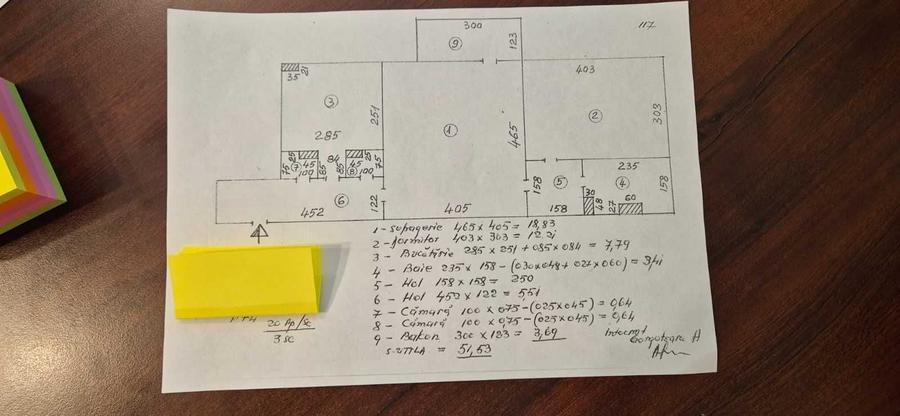 300
117
9
123
403
35
21
3
251
1
465
2
303
285
25
25
84
45
45
235
75
7
100
85
85
8
100
75
158
5
30
4
158
452
6
122
405
158
48
27
60
1 - sufragerie 465 x 405 = 18,83
2 - dormitor 403 x 303 = 12.21
3 - Bucătărie 285 x 251 + 085 x 084 = 7,79
4 - Baie 235 x 158 - (030x048 + 027 x 060) =
5 - Hol 158 x 158 = 250
6 - Hol 452 x 122 = 551
7 - Cămară 100 x 075 - (025 x 045) = 0,64
8 - Cămară 100 x 0,75 - (025 x 045) = 0,64
9 - Balkon 300 x 123 = 3,69
S.UTILA = 51,53
20 Ap/sc
3 sc
Intocmit